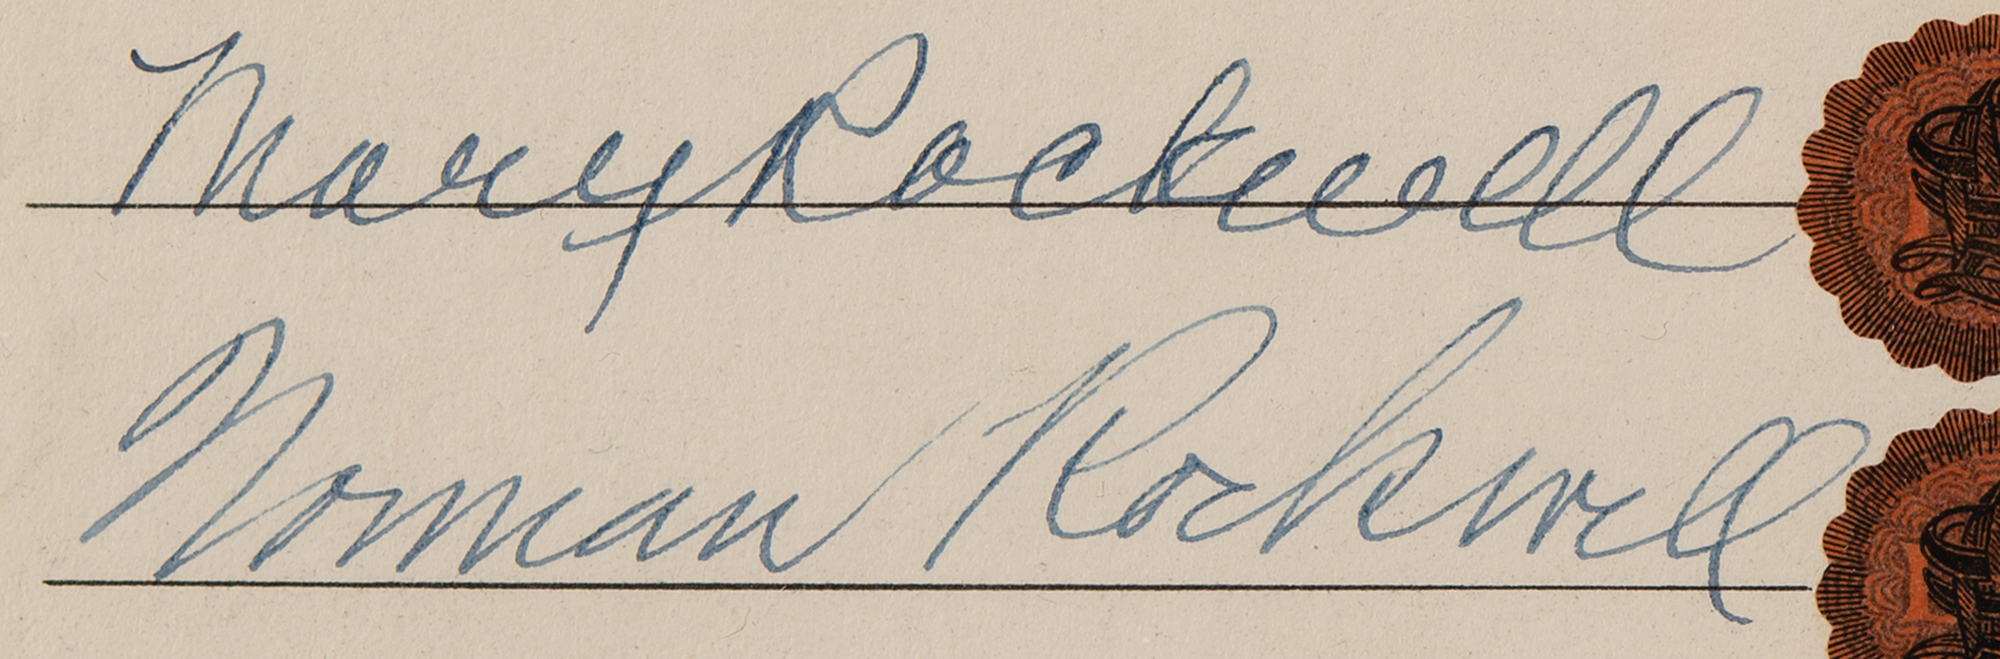 Mary Rockwell
Norman Rockwell